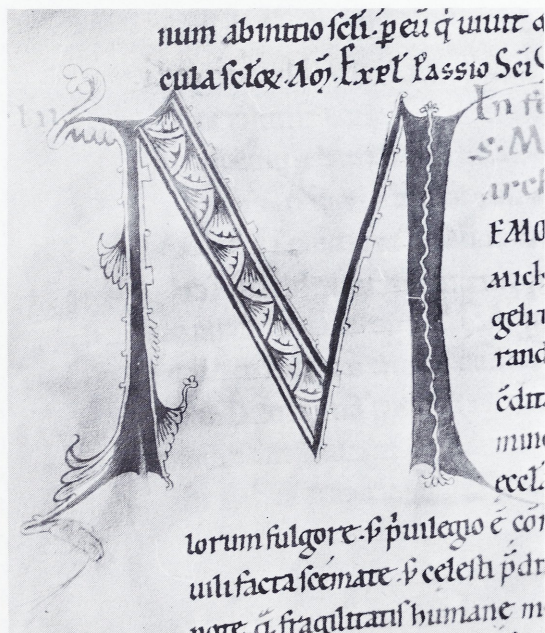 num ab initio scłi. p eū q̇ uiuit
cula scłoꝝ. Am̄. Expł passio Sci
In
S. M
arch
M
EMO
mich
geli
rand
ēdita
mine
eccl.
lorum fulgore. s; p̓uilegio ē con
uili facta scemate. s; celesti p̄di
note. q. fragilitatis humane me